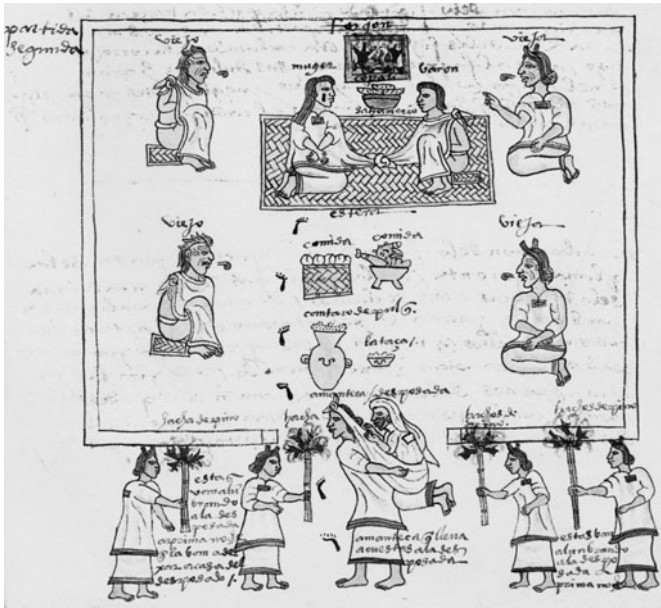 partida
segunda
fogon
viejo
vieja
muger
baron
estera
viejo
vieja
comida
comida
cantaro de pulq
la taça /.
amanteca / desposada
hacha de pino
hacha
hachos de pino
hachos de pino
estas
van alū
brando
ala des
posada
amanteca q lleva
acuestas ala des
posada
estas ban
alunbrando
ala des
posada